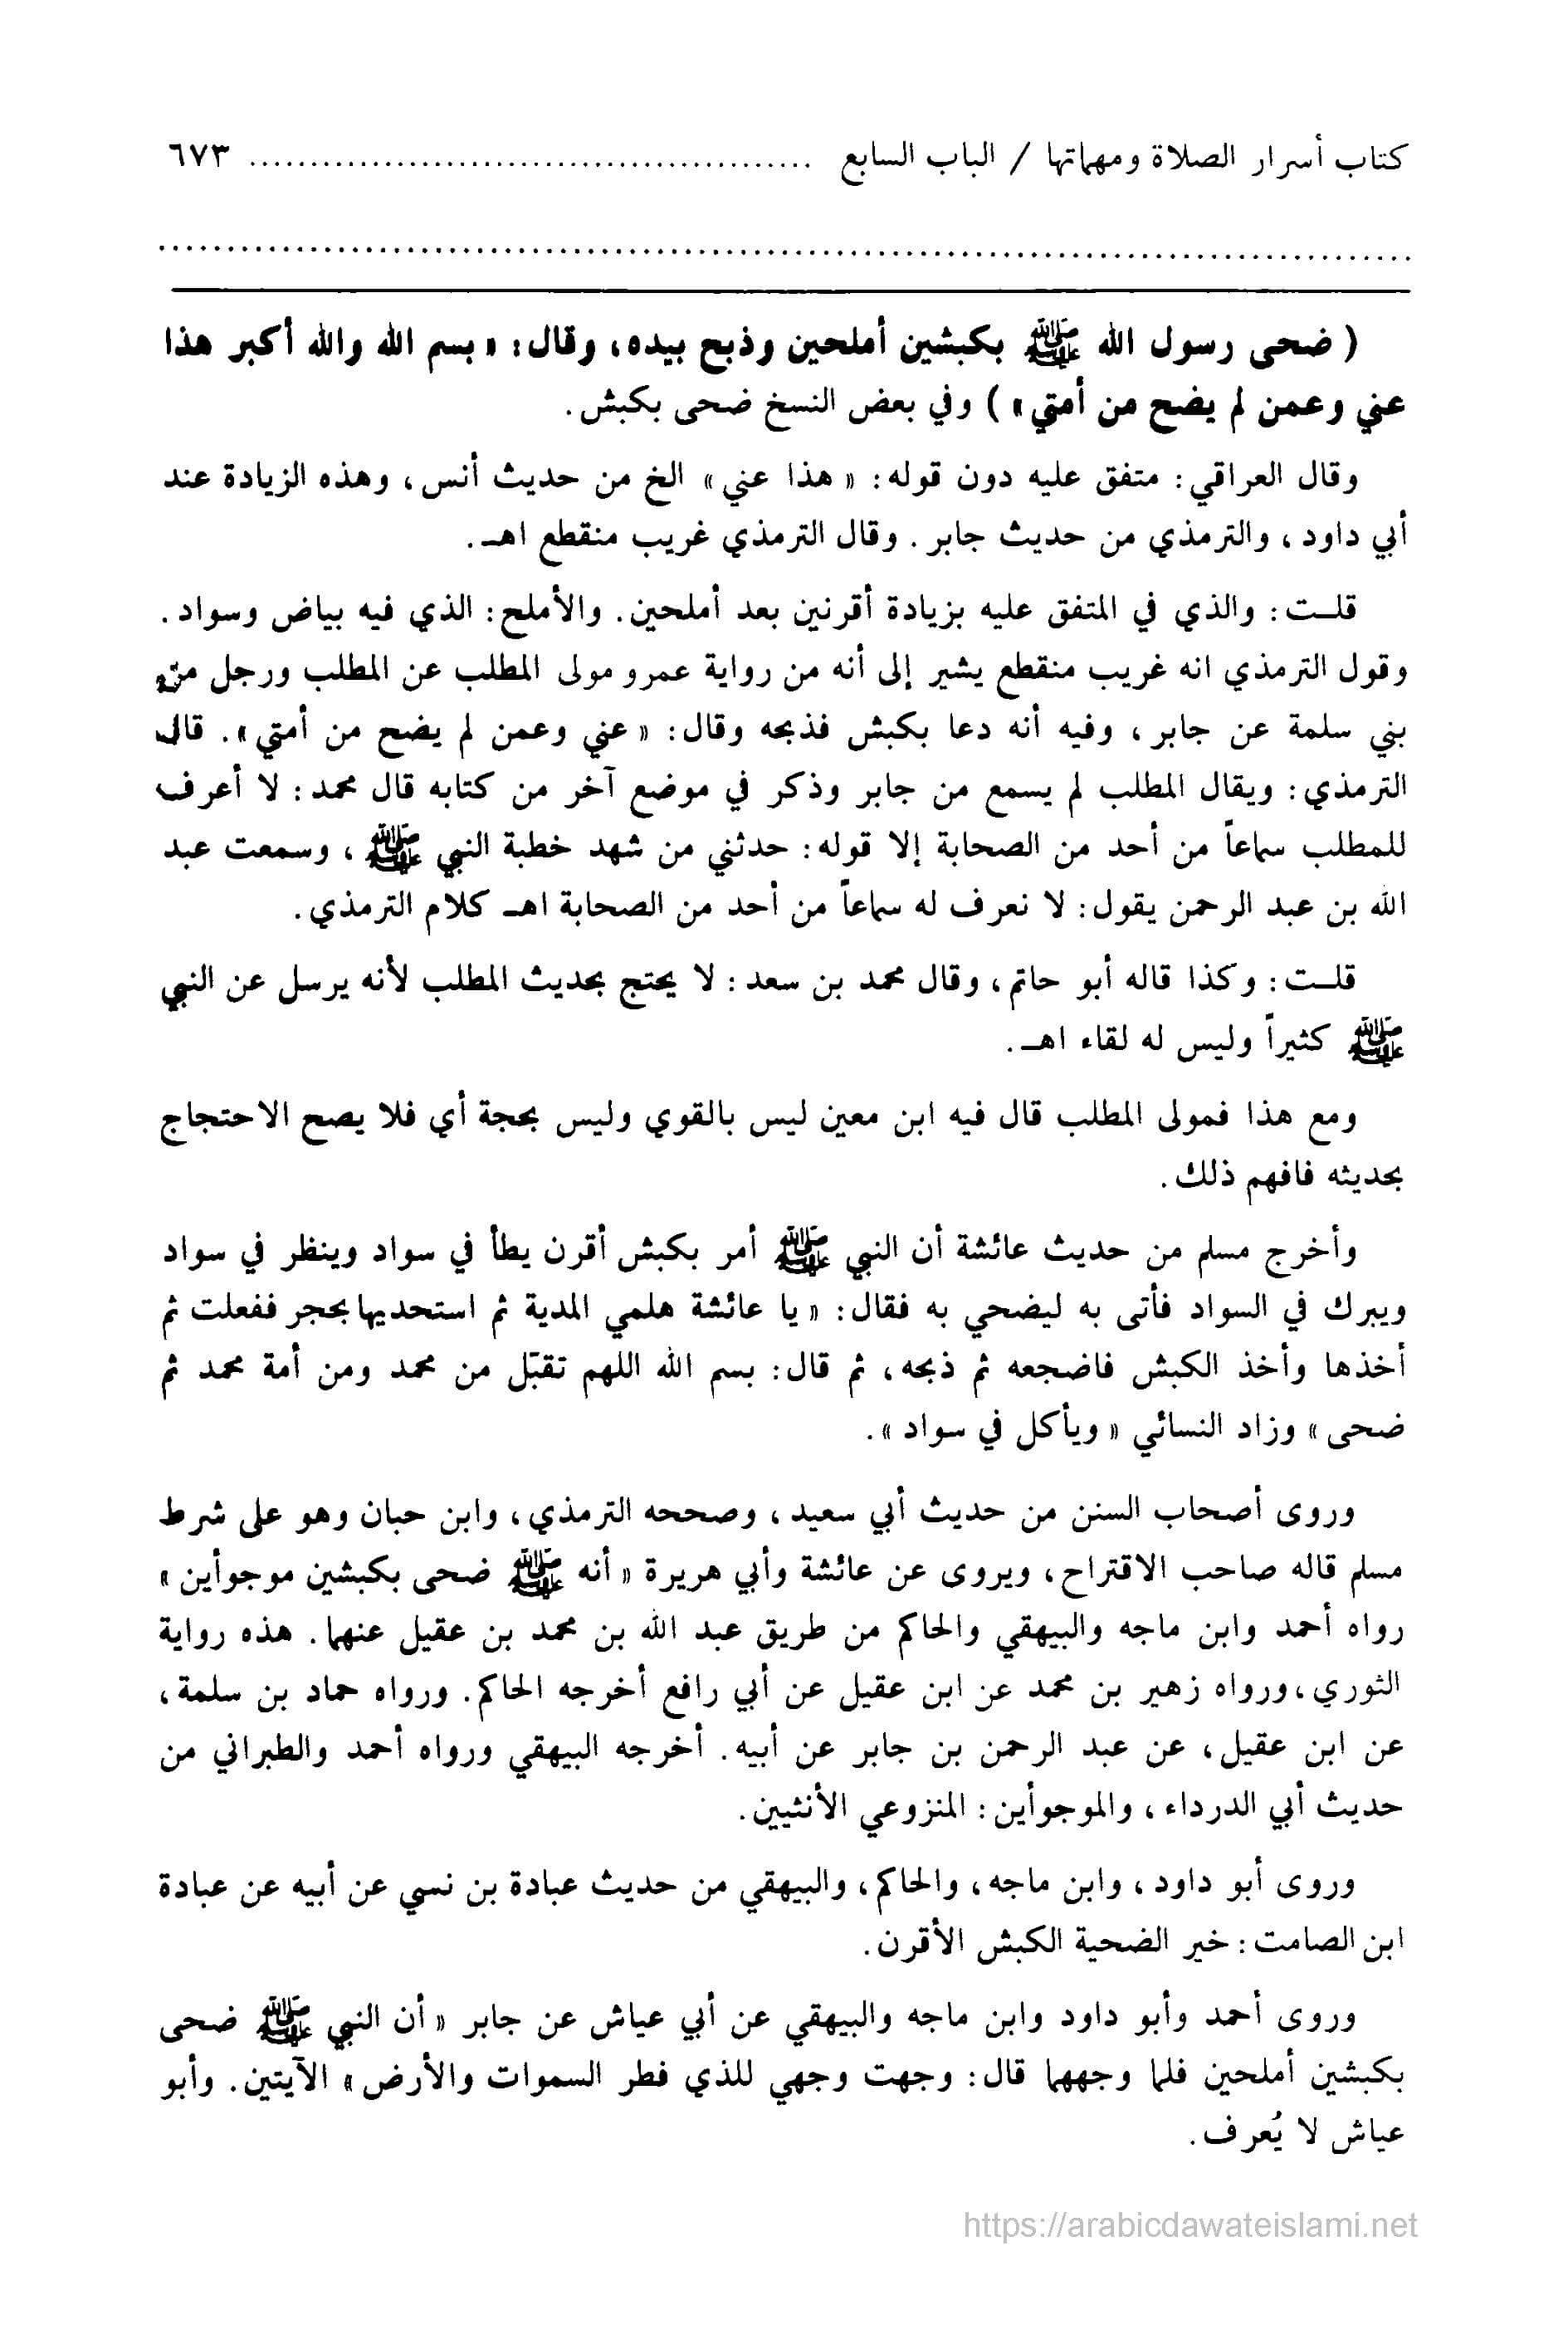 كتاب أسرار الصلاة ومهماتها / الباب السابع ............................................... ٦٧٣
..........................................................................................
( ضحى رسول الله ﷺ بكبشين أملحين وذبح بيده، وقال: « بسم الله والله أكبر هذا
عني وعمن لم يضح من أمتي» ) وفي بعض النسخ ضحى بكبش.
وقال العراقي: متفق عليه دون قوله: « هذا عني» الخ من حديث أنس، وهذه الزيادة عند
أبي داود، والترمذي من حديث جابر. وقال الترمذي غريب منقطع اهـ.
قلـت: والذي في المتفق عليه بزيادة أقرنين بعد أملحين. والأملح: الذي فيه بياض وسواد.
وقول الترمذي انه غريب منقطع يشير إلى أنه من رواية عمرو مولى المطلب عن المطلب ورجل من
بني سلمة عن جابر، وفيه أنه دعا بكبش فذبحه وقال: « عني وعمن لم يضح من أمتي». قال
الترمذي: ويقال المطلب لم يسمع من جابر وذكر في موضع آخر من كتابه قال محمد: لا أعرف
للمطلب سماعاً من أحد من الصحابة إلا قوله: حدثني من شهد خطبة النبي ﷺ، وسمعت عبد
الله بن عبد الرحمن يقول: لا نعرف له سماعاً من أحد من الصحابة اهـ كلام الترمذي.
قلـت: وكذا قاله أبو حاتم، وقال محمد بن سعد: لا يحتج بحديث المطلب لأنه يرسل عن النبي
ﷺ كثيراً وليس له لقاء اهـ.
ومع هذا فمولى المطلب قال فيه ابن معين ليس بالقوي وليس بحجة أي فلا يصح الاحتجاج
بحديثه فافهم ذلك.
وأخرج مسلم من حديث عائشة أن النبي ﷺ أمر بكبش أقرن يطأ في سواد وينظر في سواد
ويبرك في السواد فأتى به ليضحي به فقال: « يا عائشة هلمي المدية ثم استحديها بحجر ففعلت ثم
أخذها وأخذ الكبش فاضجعه ثم ذبحه، ثم قال: بسم الله اللهم تقبّل من محمد ومن أمة محمد ثم
ضحى» وزاد النسائي « ويأكل في سواد».
وروى أصحاب السنن من حديث أبي سعيد، وصححه الترمذي، وابن حبان وهو على شرط
مسلم قاله صاحب الاقتراح، ويروى عن عائشة وأبي هريرة « أنه ﷺ ضحى بكبشين موجوأين»
رواه أحمد وابن ماجه والبيهقي والحاكم من طريق عبد الله بن محمد بن عقيل عنهما. هذه رواية
الثوري، ورواه زهير بن محمد عن ابن عقيل عن أبي رافع أخرجه الحاكم. ورواه حماد بن سلمة،
عن ابن عقيل، عن عبد الرحمن بن جابر عن أبيه. أخرجه البيهقي ورواه أحمد والطبراني من
حديث أبي الدرداء، والموجوأين: المنزوعي الأنثيين.
وروى أبو داود، وابن ماجه، والحاكم، والبيهقي من حديث عبادة بن نسي عن أبيه عن عبادة
ابن الصامت: خير الضحية الكبش الأقرن.
وروى أحمد وأبو داود وابن ماجه والبيهقي عن أبي عياش عن جابر « أن النبي ﷺ ضحى
بكبشين أملحين فلما وجههما قال: وجهت وجهي للذي فطر السموات والأرض» الآيتين. وأبو
عياش لا يُعرف.
https://arabicdawateislami.net